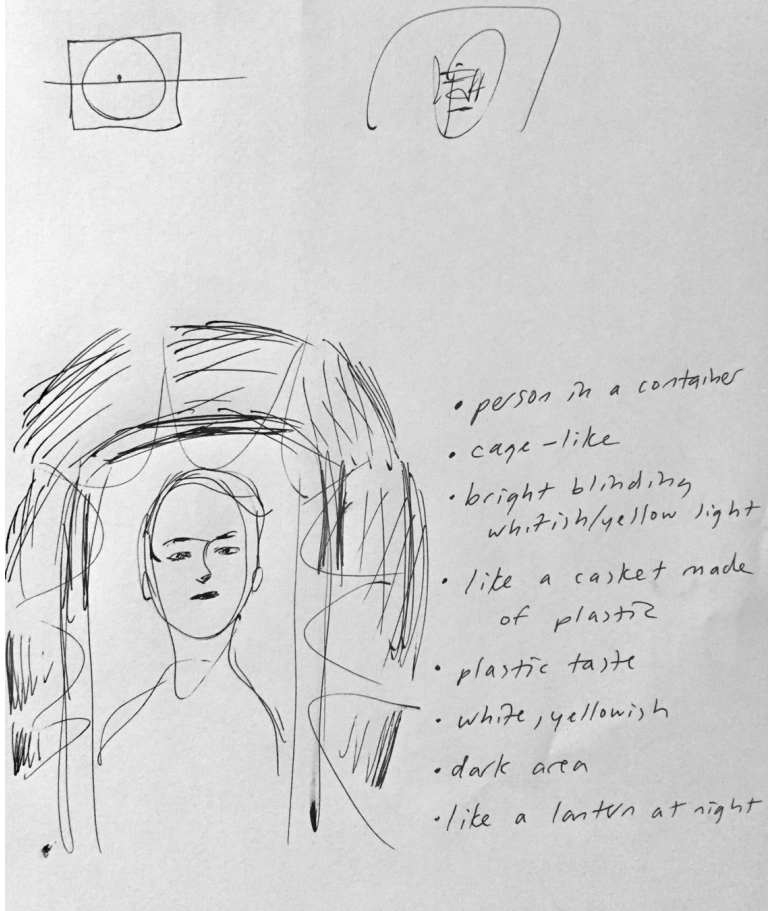 • person in a container
• cage-like
• bright blinding
whitish/yellow light
• like a casket made
of plastic
• plastic taste
• white, yellowish
• dark area
• like a lantern at night